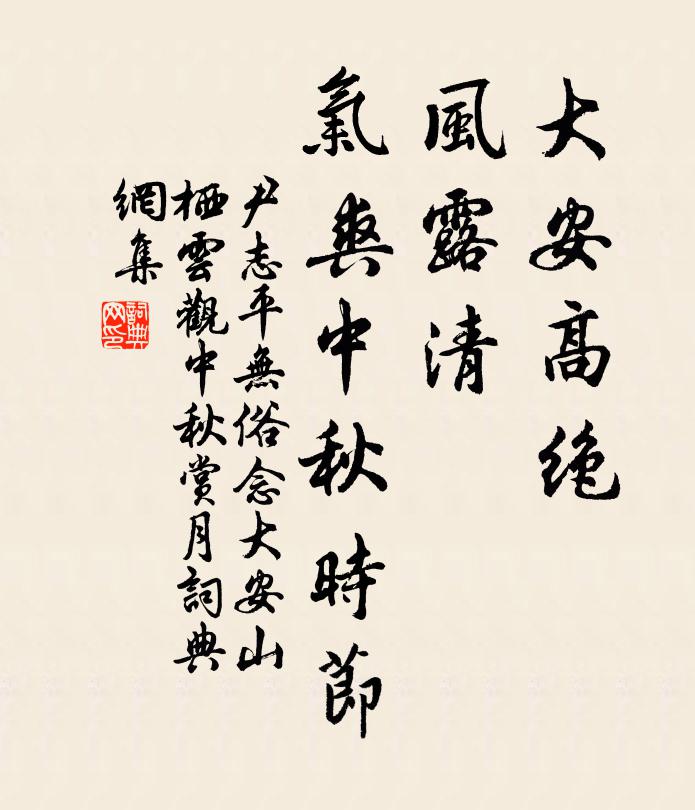 大安高绝
風露清
氣爽中秋時節
尹志平無俗念大安山
栖雲觀中秋賞月詞典
網集
詞典
网印